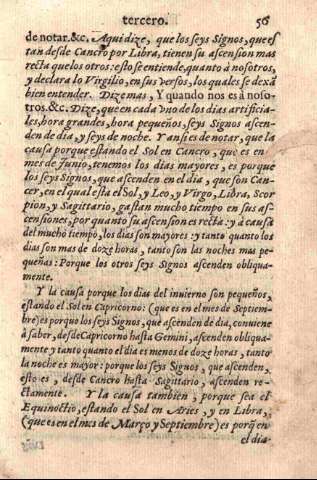 tercero. 56
de notar.&c. Aqui dize, que los seys Signos, que es
tan desde Cancro por Libra, tienen su ascension mas
recta que los otros: esto se entiende, quanto à nosotros,
y declara lo Virgilio, en sus versos, los quales se dexã
bien entender. Dize mas, Y quando nos es à noso-
tros.&c. Dize, que en cada vno de los dias artificia-
les, hora grandes, hora pequeños, seys Signos ascen
den de dia, y seys de noche. Y ansi es de notar, que la
causa porque estando el Sol en Cancro, que es en
mes de Iunio, tenemos los dias mayores, es porque
los seys Signos, que ascenden en el dia, que son Can-
cer, en el qual esta el Sol, y Leo, y Virgo, Libra, Scor
pion, y Sagittario, gastan mucho tiempo en sus as-
censiones, por quanto su ascension es recta: y à causa
del mucho tiempo, los dias son mayores: y tanto quanto los
dias son mas de doze horas, tanto son las noches mas pe-
queñas: Porque los otros seys Signos ascenden obliqua-
mente.
Y la causa porque los dias del inuierno son pequeños,
estando el Sol en Capricorno: (que es en el mes de Septiem-
bre) es porque los seys Signos, que ascenden de dia, conuiene
à saber, desde Capricorno hasta Gemini, ascenden obliqua-
mente y tanto quanto el dia es menos de doze horas, tanto
la noche es mayor: porque los seys Signos, que ascenden,
esto es, desde Cancro hasta Sagittario, ascenden re-
ctamente. Y la causa tambien, porque sea el
Equinoctio, estando el Sol en Aries, y en Libra,
(que es en el mes de Março y Septiembre) es porq̃ en
el dia